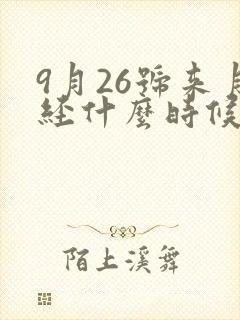 9月26號来月
経什麼時候
陌上溪舞